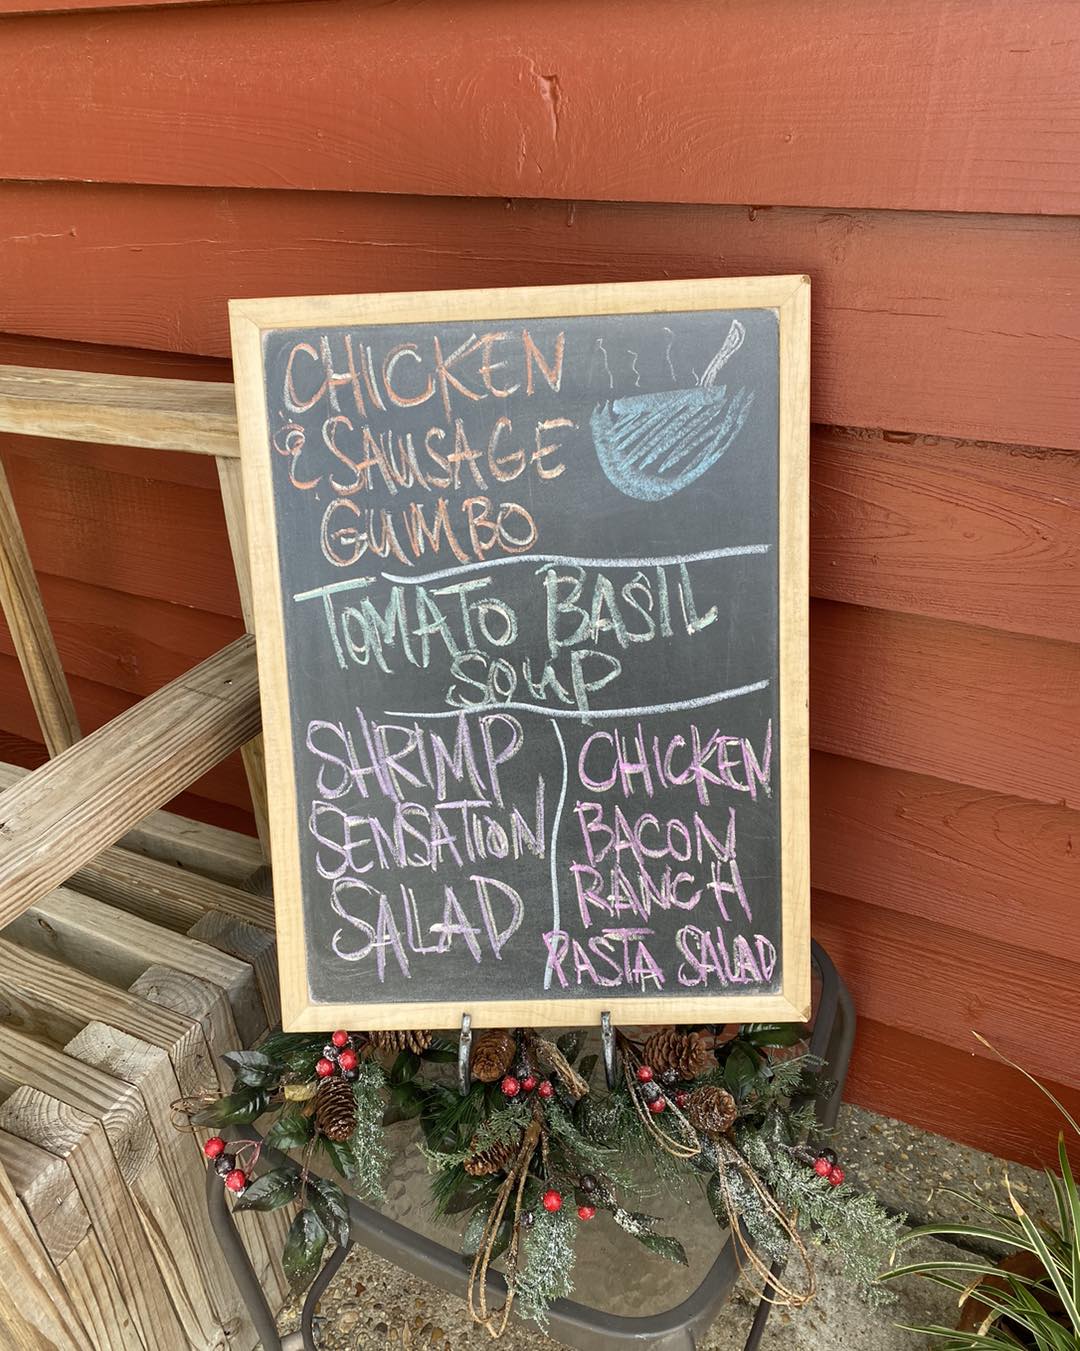 CHICKEN
& SAUSAGE
GUMBO
TOMATO BASIL
SOUP
SHRIMP
SENSATION
SALAD
CHICKEN
BACON
RANCH
PASTA SALAD